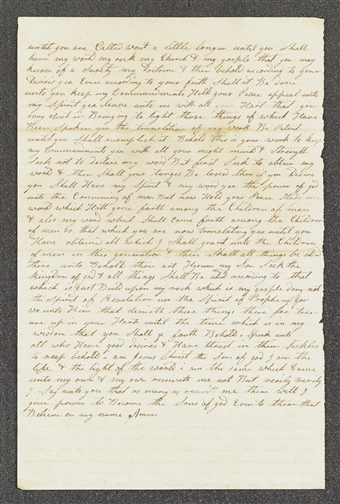 until you are Called wait a little longer until you shall
have my word my rock my Church & my gosple that you may
know of a surety my Doctrine & then behold according to your
Desires yea Even according to your faith shall it Be done
unto you keep my Commandments Hold your Peace appeal unto
my Spirit yea Cleave unto me with all your Heart that you
may assist in Bringing to light those things of which Have
Been Spoken yea the translation of my work Be Patient
until you Shall accomplish it Behold this is your work to keep
my Commandments yea with all your might mind & Strength
Seek not to declare my word But first Seek to obtain my
word & then Shall your tongue Be loosed then if you Desire
you Shall Have my Spirit & my word yea the power of god
unto the Convincing of men But now Hold your Peace Study my
word which Hath gone forth among the Children of men
& also my word which Shall Come forth among the Children
of men or that which you are now translating yea until you
Have obtained all which I Shall grant unto the Children
of men in this generation & then Shall all things be ad-
-ded unto Behold thou art my Son Seek the
Kingdom of god & all things Shall Be according to that
which is just Build upon my rock which is my gosple deny not
the spirit of Revelation nor the Spirit of Prophecy for
wo unto Him that denieth these things there fore treas-
ure up in your Hearts until the time which is in my
wisdom that you Shall go forth Behold I Speak unto
all who Have good desires & Have thrust in their sickles
to reap behold I am Jesus Christ the Son of god I am the
life & the light of the world I am the same which Came
unto my own & my own received me not But verily verily
I Say unto you that as many as receive me them will I
give power to Become the Sons of god Even to them that
Believe on my name Amen